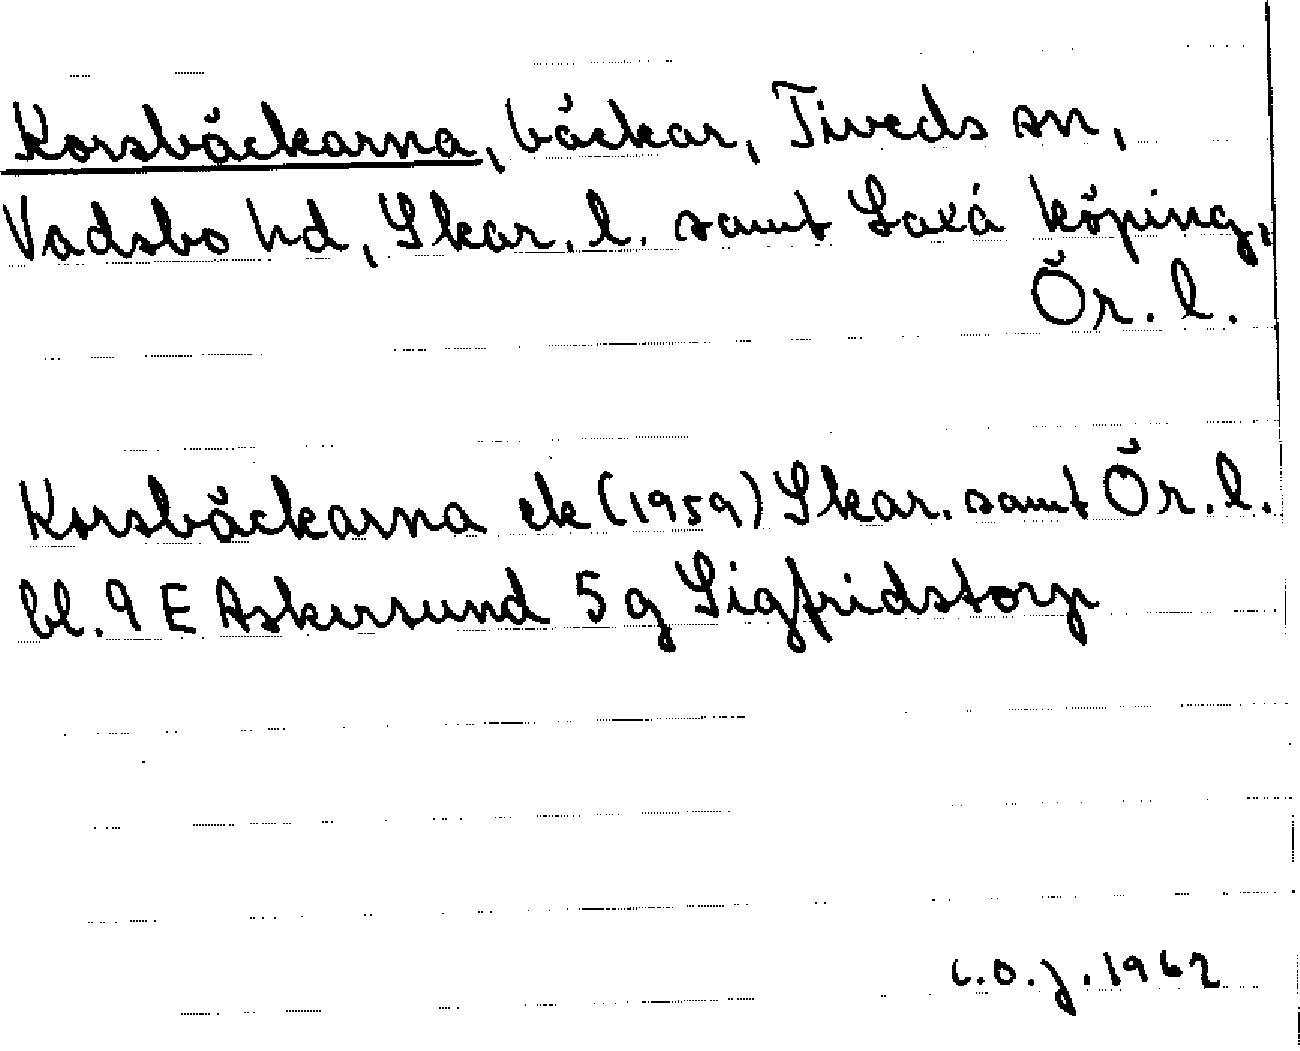 Korsbäckarna, bäckar, Tiveds sn,
Vadsbo hd, Skar. l. samt Laxå köping,
Ör. l.
Korsbäckarna ek (1959) Skar. samt Ör. l.
bl. 9 E Askersund 5 g Sigfridstorp
c.o.j. 1962